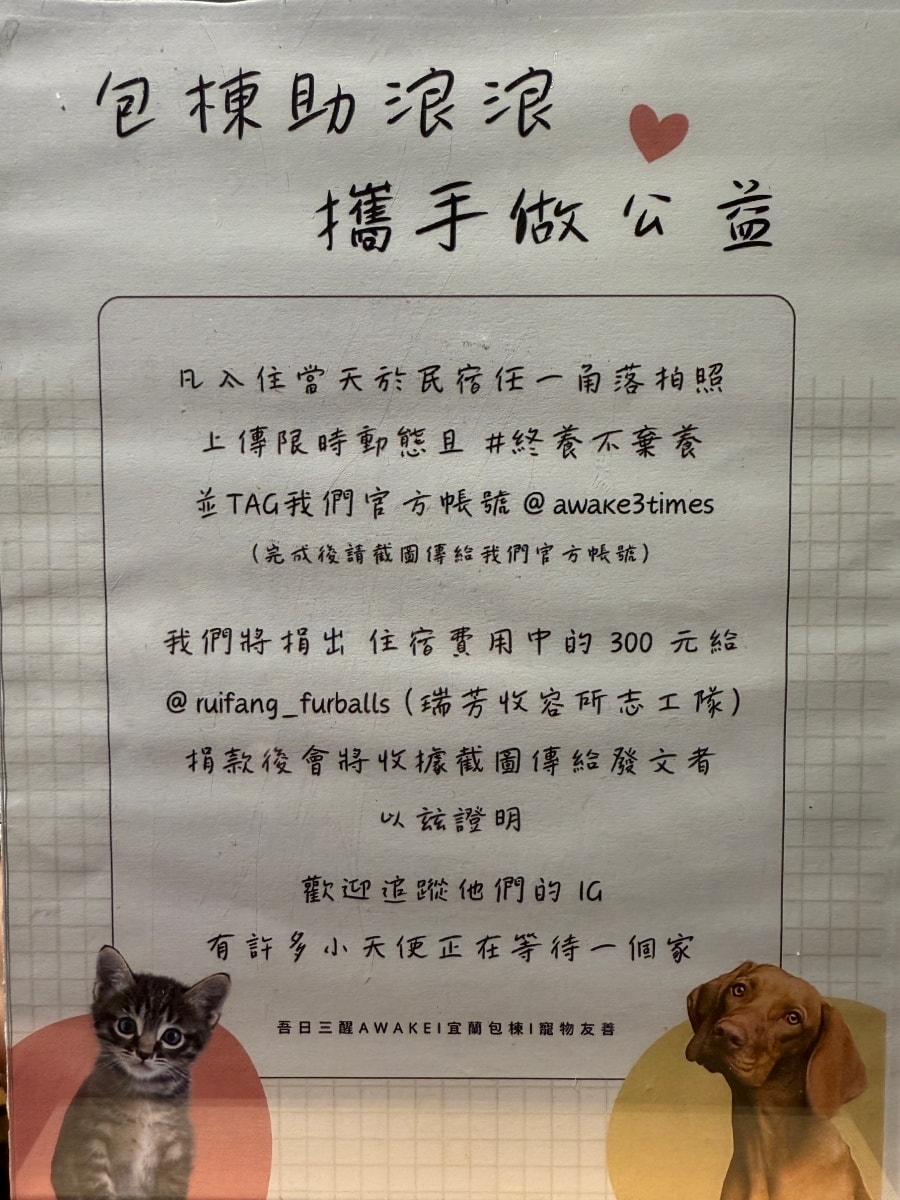 包棟助浪浪
攜手做公益
凡入住當天於民宿任一角落拍照
上傳限時動態且 #終養不棄養
並TAG我們官方帳號 @ awake3times
(完成後請截圖傳給我們官方帳號)
我們將捐出 住宿費用中的 300 元給
@ ruifang_furballs (瑞芳收容所志工隊)
捐款後會將收據截圖傳給發文者
以茲證明
歡迎追蹤他們的 IG
有許多小天使正在等待一個家
吾日三醒AWAKEI宜蘭包棟I寵物友善